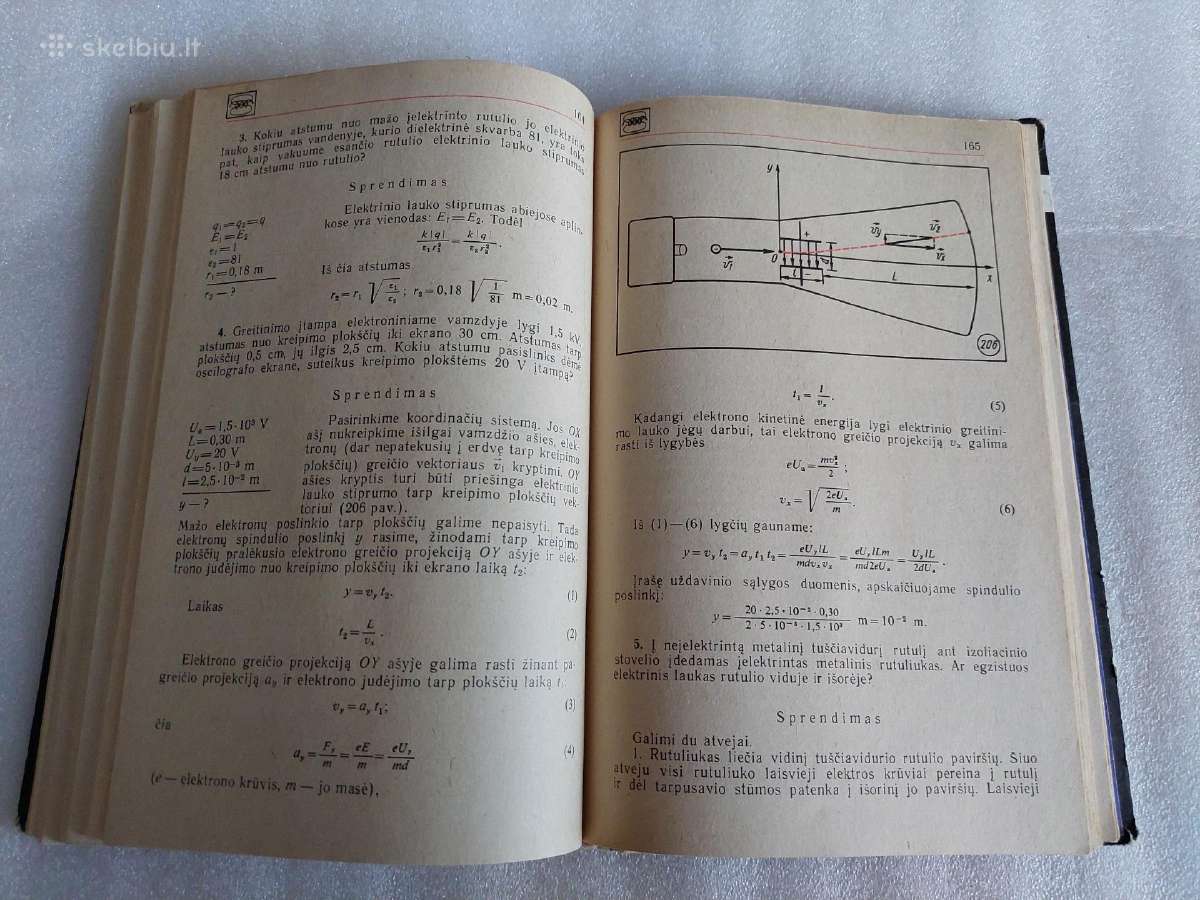 skelbiu.lt
164
3. Kokiu atstumu nuo mažo įelektrinto rutulio jo elektrinio
lauko stiprumas vandenyje, kurio dielektrinė skvarba 81, yra toks
pat, kaip vakuume esančio rutulio elektrinio lauko stiprumas
18 cm atstumu nuo rutulio?
Sprendimas
q₁=q₂=q
E₁=E₂
ε₁=1
ε₂=81
r₁=0,18 m
r₂—?
Elektrinio lauko stiprumas abiejose aplin-
kose yra vienodas: E₁=E₂. Todėl
k|q|/ε₁r₁² = k|q|/ε₂r₂².
Iš čia atstumas
r₂=r₁ √(ε₁/ε₂); r₂=0,18 √(1/81) m=0,02 m.
4. Greitinimo įtampa elektroniniame vamzdyje lygi 1,5 kV,
atstumas nuo kreipimo plokščių iki ekrano 30 cm. Atstumas tarp
plokščių 0,5 cm, jų ilgis 2,5 cm. Kokiu atstumu pasislinks dėmė
oscilografo ekrane, suteikus kreipimo plokštėms 20 V įtampą?
Sprendimas
Uₐ=1,5·10³ V
L=0,30 m
Uᵧ=20 V
d=5·10⁻³ m
l=2,5·10⁻² m
y—?
Pasirinkime koordinačių sistemą. Jos OX
ašį nukreipkime išilgai vamzdžio ašies, elek-
tronų (dar nepatekusių į erdvę tarp kreipimo
plokščių) greičio vektoriaus v⃗₁ kryptimi. OY
ašies kryptis turi būti priešinga elektrinio
lauko stiprumo tarp kreipimo plokščių vek-
toriui (206 pav.).
Mažo elektronų poslinkio tarp plokščių galime nepaisyti. Tada
elektronų spindulio poslinkį y rasime, žinodami tarp kreipimo
plokščių pralėkusio elektrono greičio projekciją OY ašyje ir elek-
trono judėjimo nuo kreipimo plokščių iki ekrano laiką t₂:
y=vᵧ t₂. (1)
Laikas
t₂=L/vₓ. (2)
Elektrono greičio projekciją OY ašyje galima rasti žinant pa-
greičio projekciją aᵧ ir elektrono judėjimo tarp plokščių laiką t₁:
vᵧ=aᵧ t₁; (3)
čia
aᵧ=Fᵧ/m=eE/m=eUᵧ/md (4)
(e — elektrono krūvis, m — jo masė),
165
y
+
v⃗₁
O
l
−
d
v⃗ᵧ
v⃗₂
v⃗ₓ
L
x
206
t₁=l/vₓ. (5)
Kadangi elektrono kinetinė energija lygi elektrinio greitini-
mo lauko jėgų darbui, tai elektrono greičio projekciją vₓ galima
rasti iš lygybės
eUₐ=mvₓ²/2;
vₓ=√(2eUₐ/m). (6)
Iš (1)—(6) lygčių gauname:
y=vᵧ t₂=aᵧ t₁ t₂=eUᵧlL/mdvₓvₓ=eUᵧlLm/md2eUₐ=UᵧlL/2dUₐ.
Įrašę uždavinio sąlygos duomenis, apskaičiuojame spindulio
poslinkį:
y=20·2,5·10⁻²·0,30/2·5·10⁻³·1,5·10³ m=10⁻² m.
5. Į neįelektrintą metalinį tuščiavidurį rutulį ant izoliacinio
stovelio įdedamas įelektrintas metalinis rutuliukas. Ar egzistuos
elektrinis laukas rutulio viduje ir išorėje?
Sprendimas
Galimi du atvejai.
1. Rutuliukas liečia vidinį tuščiavidurio rutulio paviršių. Šiuo
atveju visi rutuliuko laisvieji elektros krūviai pereina į rutulį
ir dėl tarpusavio stūmos patenka į išorinį jo paviršių. Laisvieji